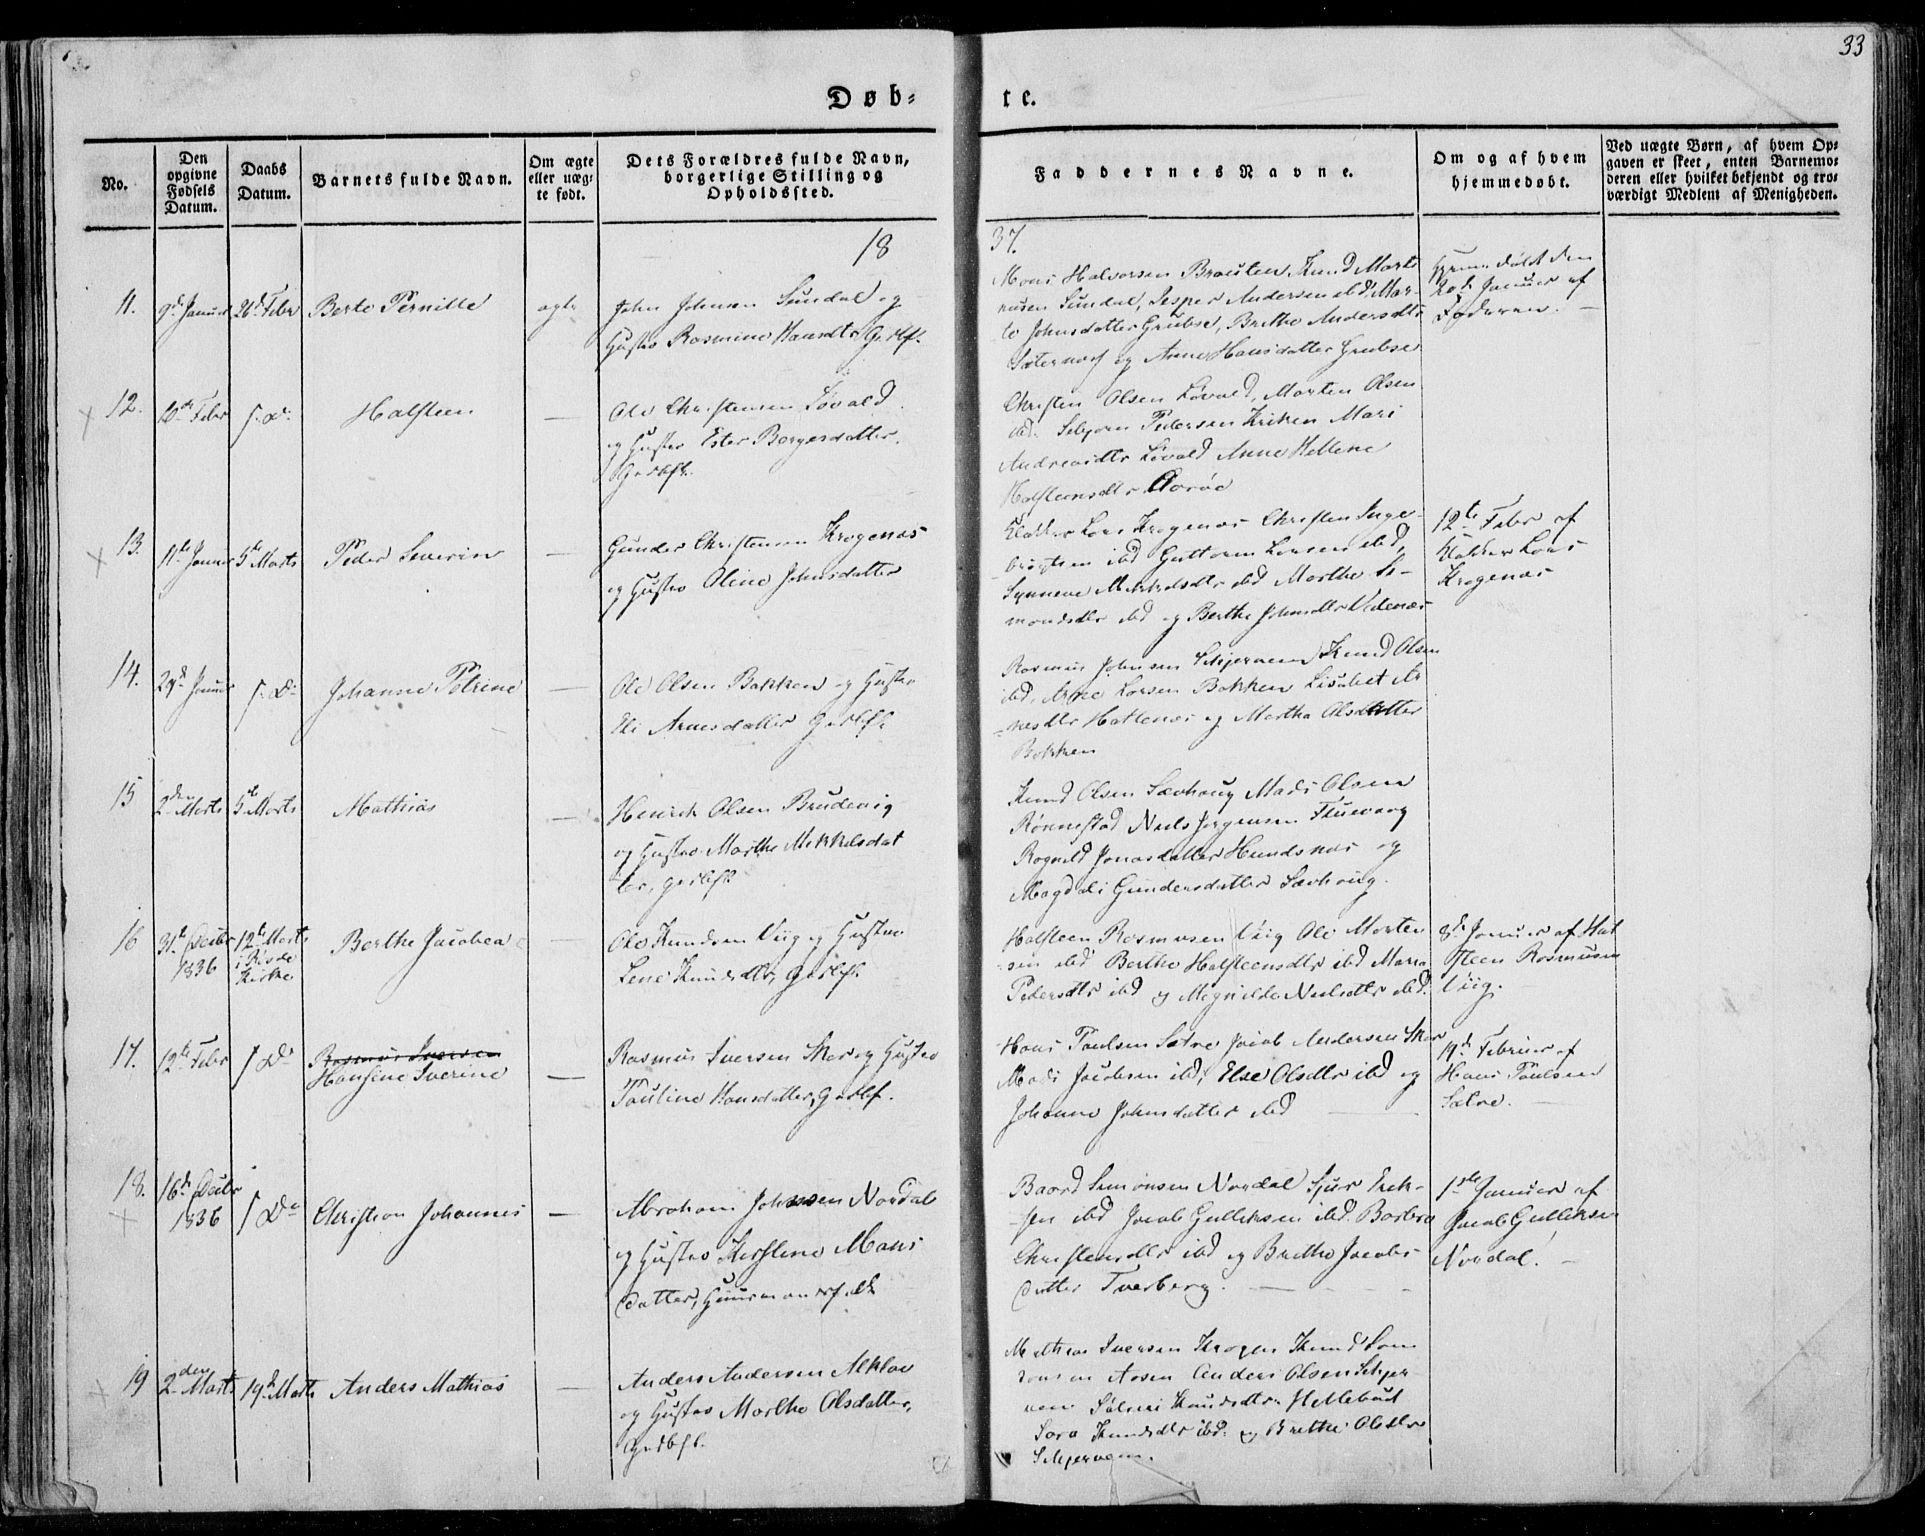 33
Døb-
te.
No.
Den opgivne Fødsels Datum.
Daabs Datum.
Barnets fulde Navn.
Om ægte eller uæg-te født.
Dets Forældres fulde Navn, borgerlige Stilling og Opholdssted.
Faddernes Navne.
Om og af hvem hjemmedøbt.
Ved uægte Børn, af hvem Op-gaven er skeet, enten Barnemo-deren eller hvilket bekjendt og tro-værdigt Medlem af Menigheden.
18
37.
11.
9de Januar
26de Febr
Berte Pernille
ægte
John Johnsen Sundal og
Hustro Rasmine Hansdtr Grdbf.
Mons Halvorsen Brauten Knud Mort-
nusen Sundal, Jesper Andersen ibd, Mar-
te Johnsdatter Grubse, Brithe Andersdtr
Sæternes og Anne Hansdatter Grubse
Hjemmedøbt den
20de Januar af
Faderen.
12.
10de Febr
s. D.
Halsteen
—
Ole Christensen Løvold
og Hustro Ester Børgesdatter.
Grdbfk.
Christen Olsen Løvold, Morten Olsen
ibd. Sebjørn Pedersen Kriken Mari
Andreasdtr Løvold Anne Hellene
Halsteensdtr Aarøe
13.
11te Januar
5te Marts
Peder Severin
—
Gunder Christensen Krogenæs
og Hustro Oline Johnsdatter
Klokker Lars Krogenæs Christen Inge-
brigtsen ibd Guttorm Larsen ibd,
Synneve Mikkelsdtr ibd Marthe A-
mondsdtr ibd og Berthe Johnsdtr Vedenæs
12te Febr af
Klokker Lars
Krogenæs
14.
29de Januar
s. D.
Johanne Petrine
—
Ole Olsen Bakken og Hustro
Eli Arnesdatter Grdbfk
Rasmus Johnsen Schjerven Knud Olsen
ibd. Arne Larsen Bakken Lisabet Ar-
nesdtr Hatlenæs og Martha Olsdatter
Bakken
15
2den Marts
5te Marts
Mathias
—
Henrik Olsen Brudevig
og Hustro Marthe Mikkelsdat
ter, Grdbfk
Knud Olsen Sævhoug Mads Olsen
Rønnestad Niels Jørgensen Fluevarg
Rognild Jonasdatter Hundsnæs og
Magdali Gundersdatter Sævhoug.
16
31te Decbr
1836
12te Marts
i Risde
Kirke
Berthe Jacobea
—
Ole Knudsen Viig og Hustro
Lene Knudsdtr, Grdbfk
Halsteen Rasmusen Viig Ole Morten
sen ibd Berthe Halsteensdtr ibd Maria
Pedersdtr ibd og Magnilda Nielsdtr ibd.
8de Januar af Hal
steen Rasmusen
Viig.
17.
12te Febr
s D.
Rasmus Iversen
Hansine Iverine
—
Rasmus Iversen Skar og Hustro
Pauline Hansdatter, Grdbf.
Hans Paulsen Sætre Jacob Andersen Skar
Mads Jacobsen ibd, Else Olsdtr ibd og
Johanne Johnsdatter ibd
19de Februar af
Hans Paulsen
Sætre.
18.
16de Decbr
1836
s D.
Christian Johannes
—
Abraham Johnsen Nordal
og Hustro Kirstine Mons
datter, Huusmandsfolk
Baard Simonsen Nordal Sjur Erik-
sen ibd Jacob Gulliksen ibd. Barbro
Christensdtr ibd og Brithe Jacobs-
datter Tverberg.
1ste Januar af
Jacob Gulliksen
Nordal.
19
2den Marts
19de Marts
Anders Mathias
—
Anders Andersen Alklov
og Hustro Marthe Olsdatter,
Grdbfk.
Mathias Iversen Krogen Knud Lom
sen Aasen Anders Olsen Schjer-
ven Knudsdtr Hellebust
Sara Knudsdtr ibd. og Brithe Olsdtr
Schjerven.